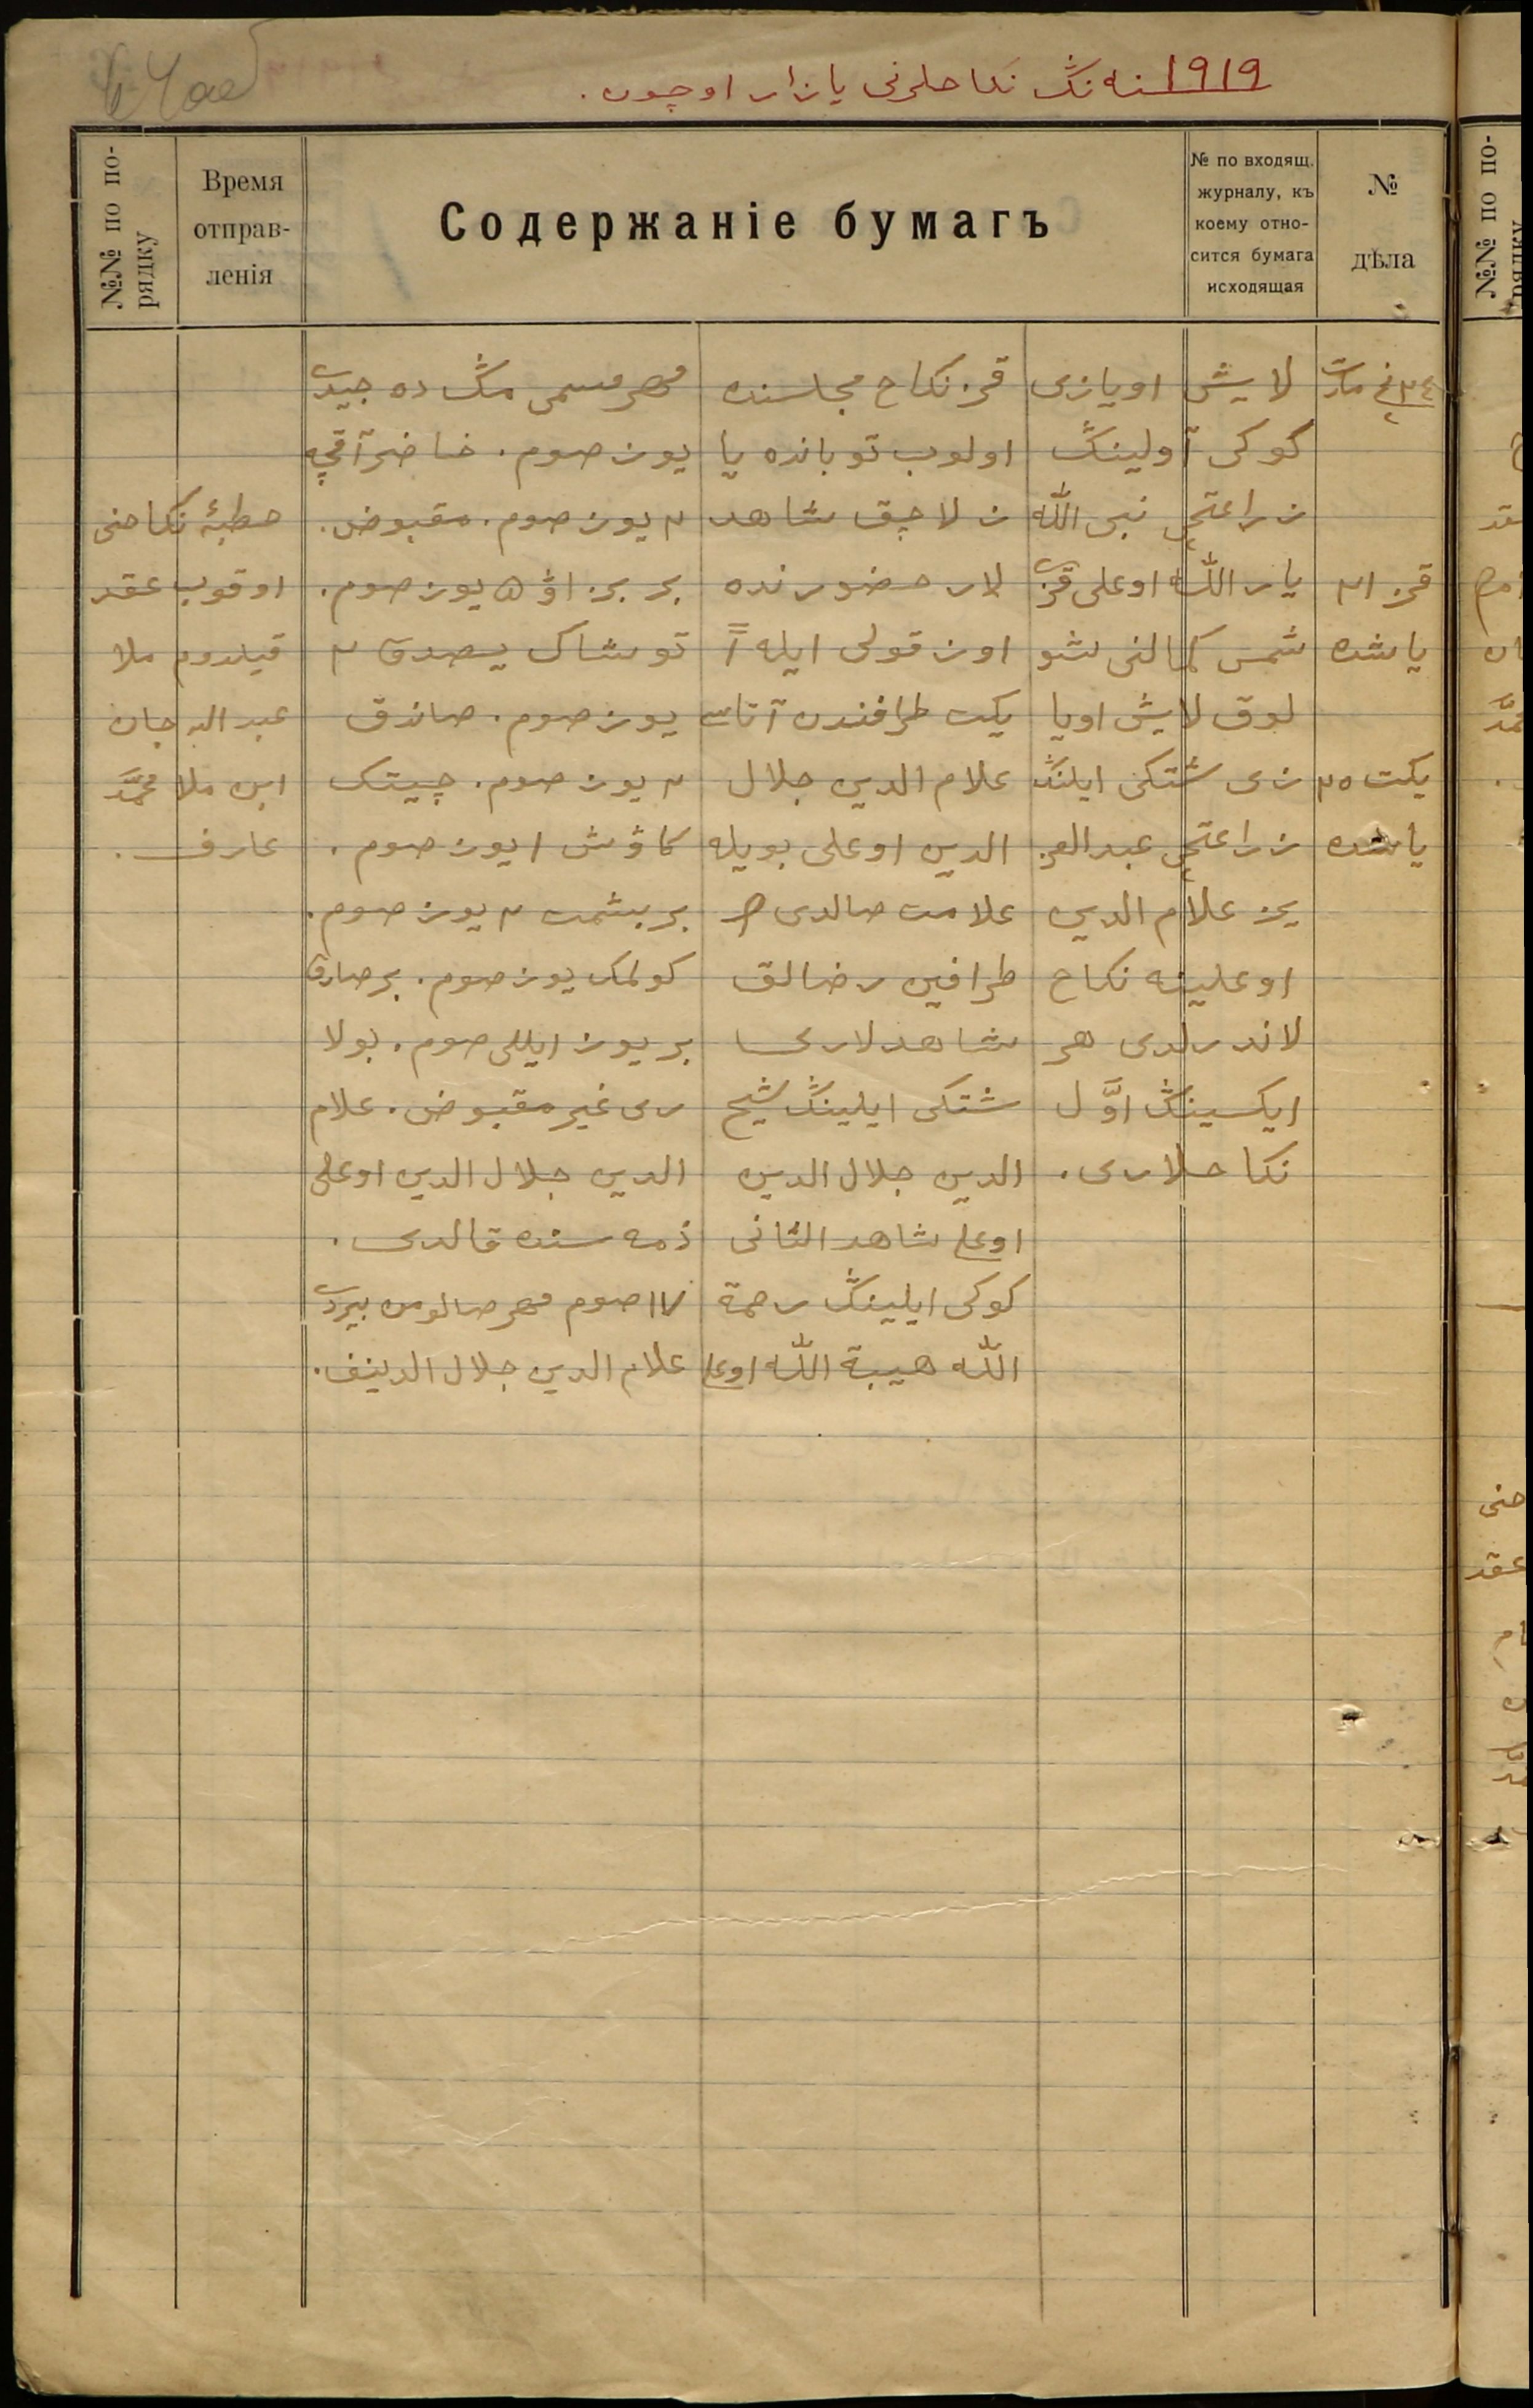 1919 نه نڭ نكاحلرنی یازار اوچون.
№№ по по-
рядку
Время
отправ-
ленія
Содержаніе бумагъ
№ по входящ.
журналу, къ
коему отно-
сится бумага
исходящая
№
дѣла
قز ٢١
یاشده
یكت ٢٥
یاشده
لایش اویازی
كوكی آولینڭ
زراعتچی نبی الله
یار الله اوغلی قزی
شمس كمالنی شو
لوق لایش اویا
زی شتكی ایلنڭ
زراعتچی عبدالعز
یز علام الدین
اوغلینه نكاح
لاندرلدی هر
ایكسینڭ اوّل
نكاحلاری.
قز نكاح مجلسنده
اولوب توبانده یا
زلاچق شاهد
لار حضورنده
اوز قولی ایله آ
یكت طرافندن آتاسی
علام الدین جلال
الدین اوغلی بویله
علامت صالدی
طرافین رضالق
شاهدلاری
شتكی ایلینڭ شیخ
الدین جلال الدین
اوغلی شاهد الثانی
كوكی ایلینڭ رحمة
الله هیبة الله اوغلی
مهر مسمی مڭ ده جیدی
یوز صوم. خاضر آقچه
٢ یوز صوم. مقبوض.
بر بز اۋ ۵ یوز صوم.
توشاك یصدق ٢
یوز صوم. صاندق
٢ یوز صوم. چیتك
كاۋش ١ یوز صوم.
بر بشمت ٢ یوز صوم.
كولمك یوز صوم. بر صارق
بر یوز ایللی صوم. بولا
ری غیر مقبوض. علام
الدین جلال الدین اوغلی
ذمه سنده قالدی.
١٧ صوم مهر صالومن بیردی
علام الدین جلال الدینف.
خطبۀ نكاحنی
اوقوب عقد
قیلدوم ملا
عبد الله جان
ابن ملا محمّد
عارف.